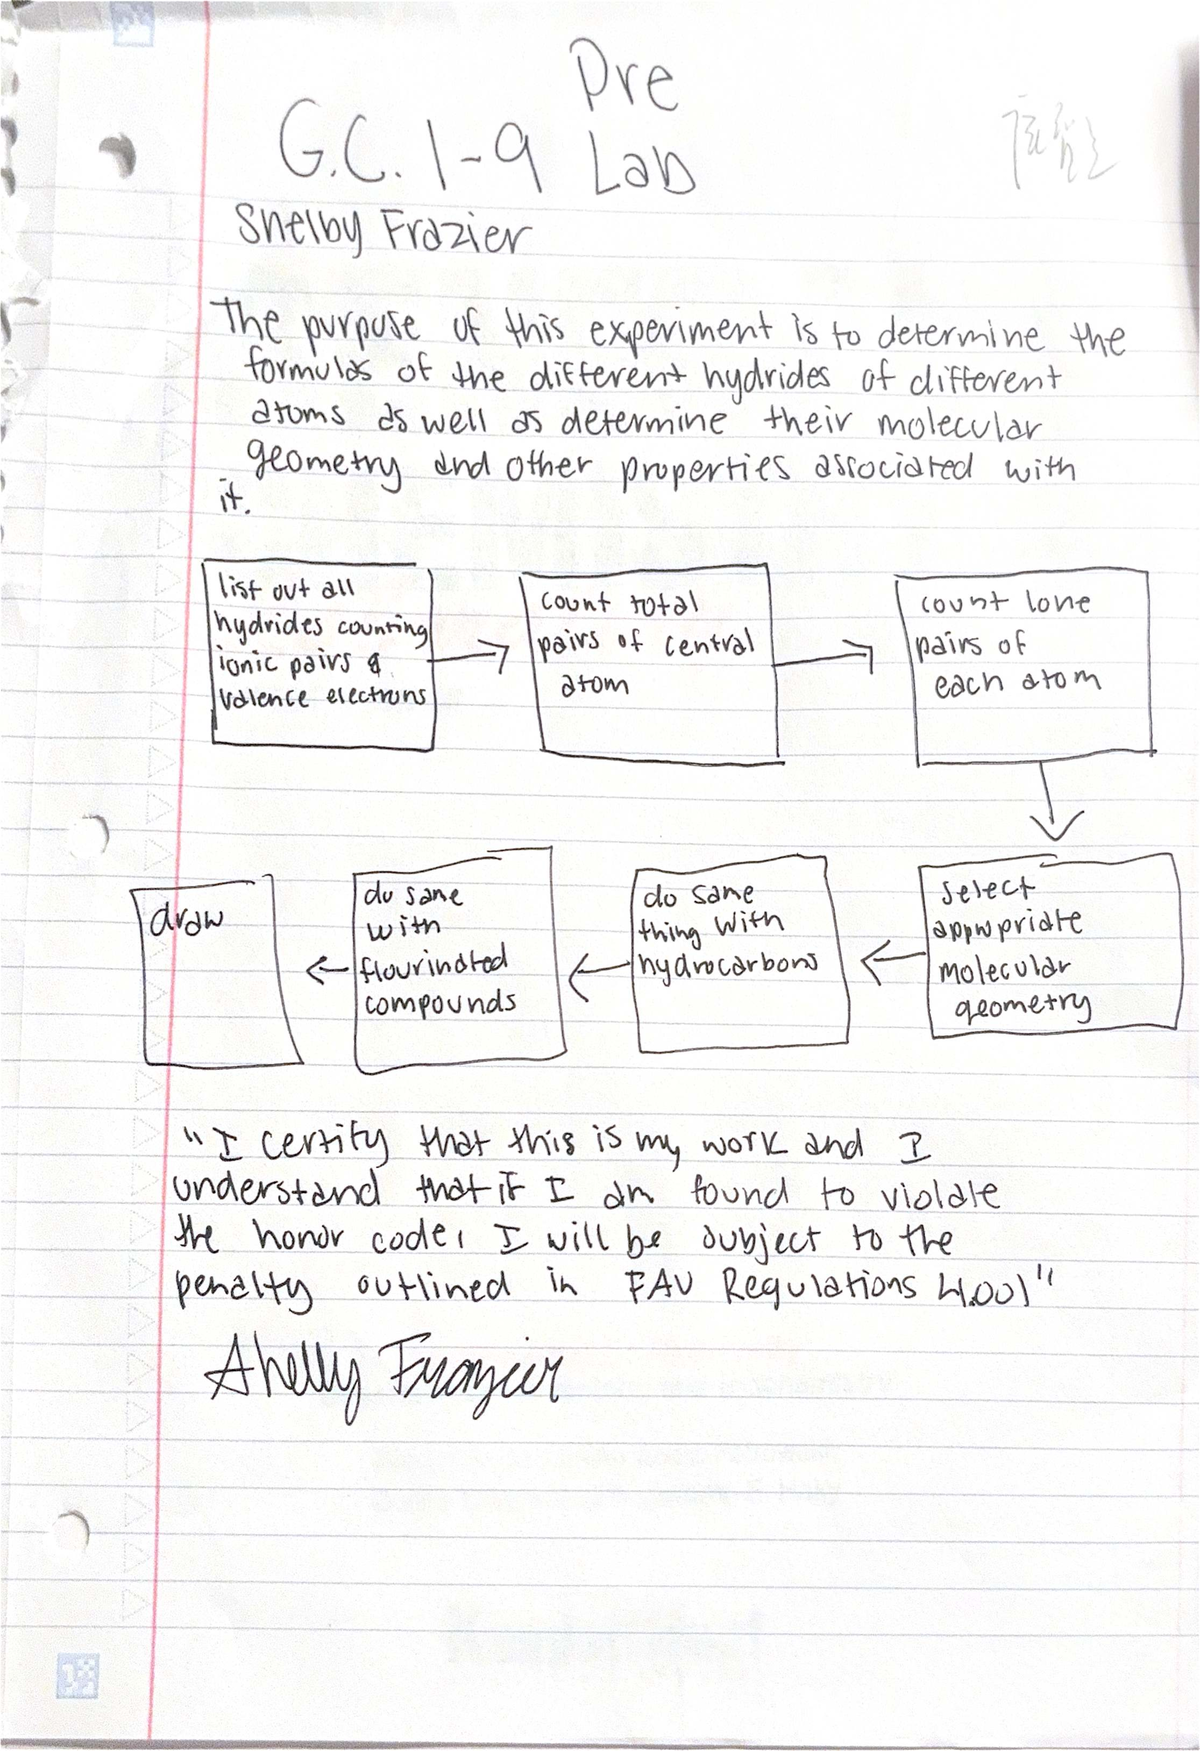 Pre
G.C. 1-9 Lab
Shelby Frazier
The purpose of this experiment is to determine the
formulas of the different hydrides of different
atoms as well as determine their molecular
geometry and other properties associated with
it.
list out all
hydrides counting
ionic pairs &
valence electrons
count total
pairs of central
atom
count lone
pairs of
each atom
select
appropriate
molecular
geometry
do same
thing with
hydrocarbons
do same
with
flourinated
compounds
draw
"I certify that this is my work and I
understand that if I am found to violate
the honor code, I will be subject to the
penalty outlined in FAU Regulations 4.001"